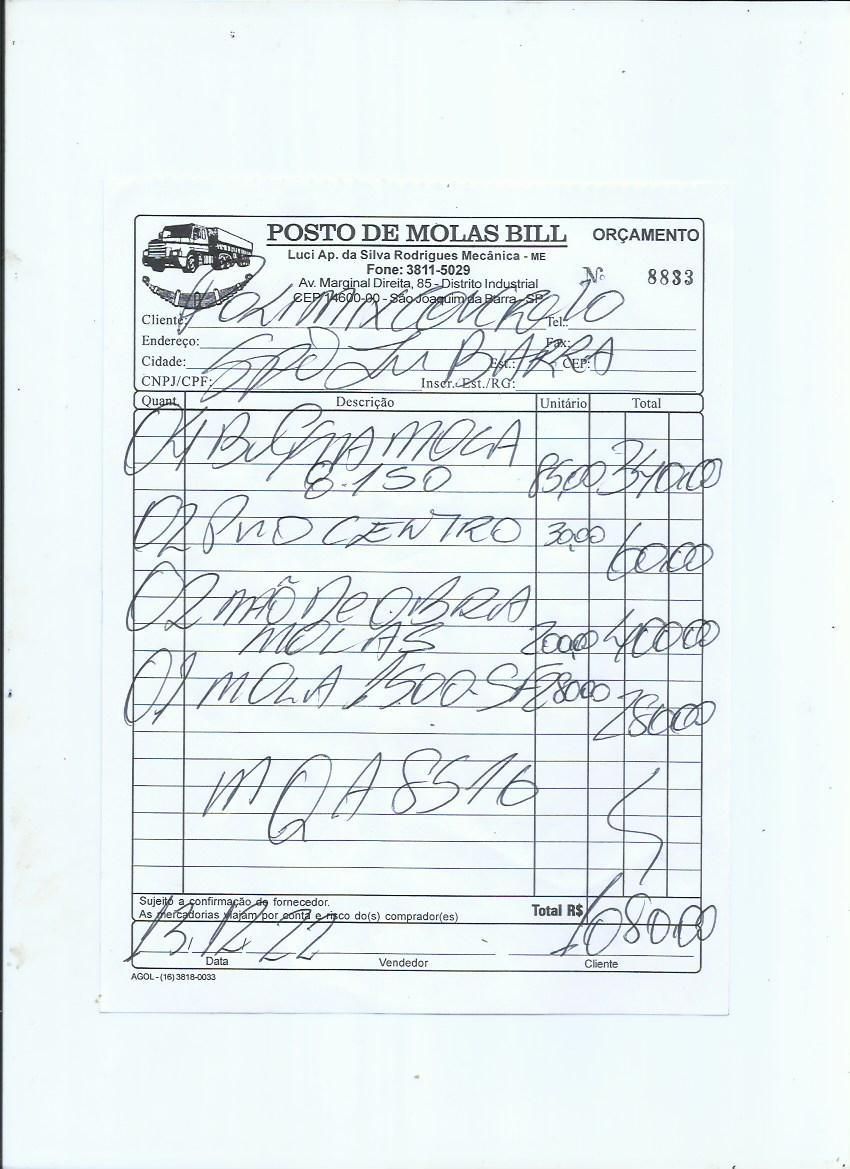 POSTO DE MOLAS BILL
ORÇAMENTO
Luci Ap. da Silva Rodrigues Mecânica - ME
Fone: 3811-5029
Av. Marginal Direita, 85 - Distrito Industrial
CEP 14600-00 - São Joaquim da Barra - SP
Nº 8833
Cliente: Polimix Concreto Tel.:
Endereço: Fax:
Cidade: São BARRA Est.: CEP:
CNPJ/CPF: Inscr. Est./RG:
Quant. Descrição Unitário Total
04 BUCHA MOLA
8.150 85,00 340,00
02 PINO CENTRO 30,00 60,00
02 MÃO De OBRA
MOLAS 200,00 400,00
01 MOLA 280,00 280,00
MQA 8516
Sujeito a confirmação do fornecedor.
As mercadorias viajam por conta e risco do(s) comprador(es)
Total R$ 1080,00
13.12.22
Data Vendedor Cliente
AGOL - (16) 3818-0033